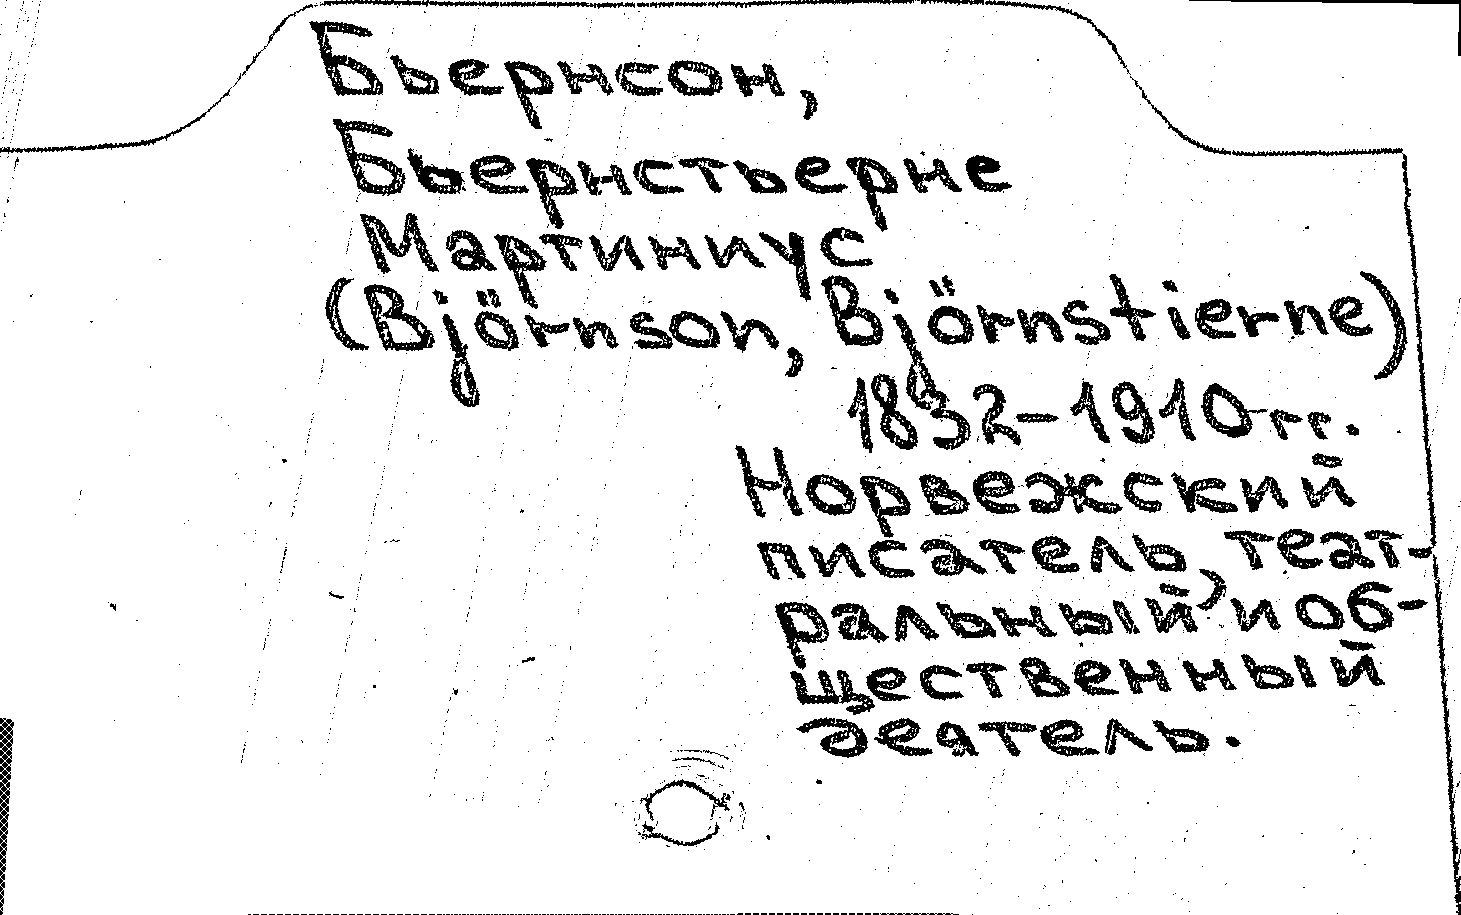 Бьернсон,
Бьернстьерне
Мартиниус
(Björnson, Björnstierne)
1832-1910 гг.
Норвежский
писатель, теат-
ральный и об-
щественный
деятель.